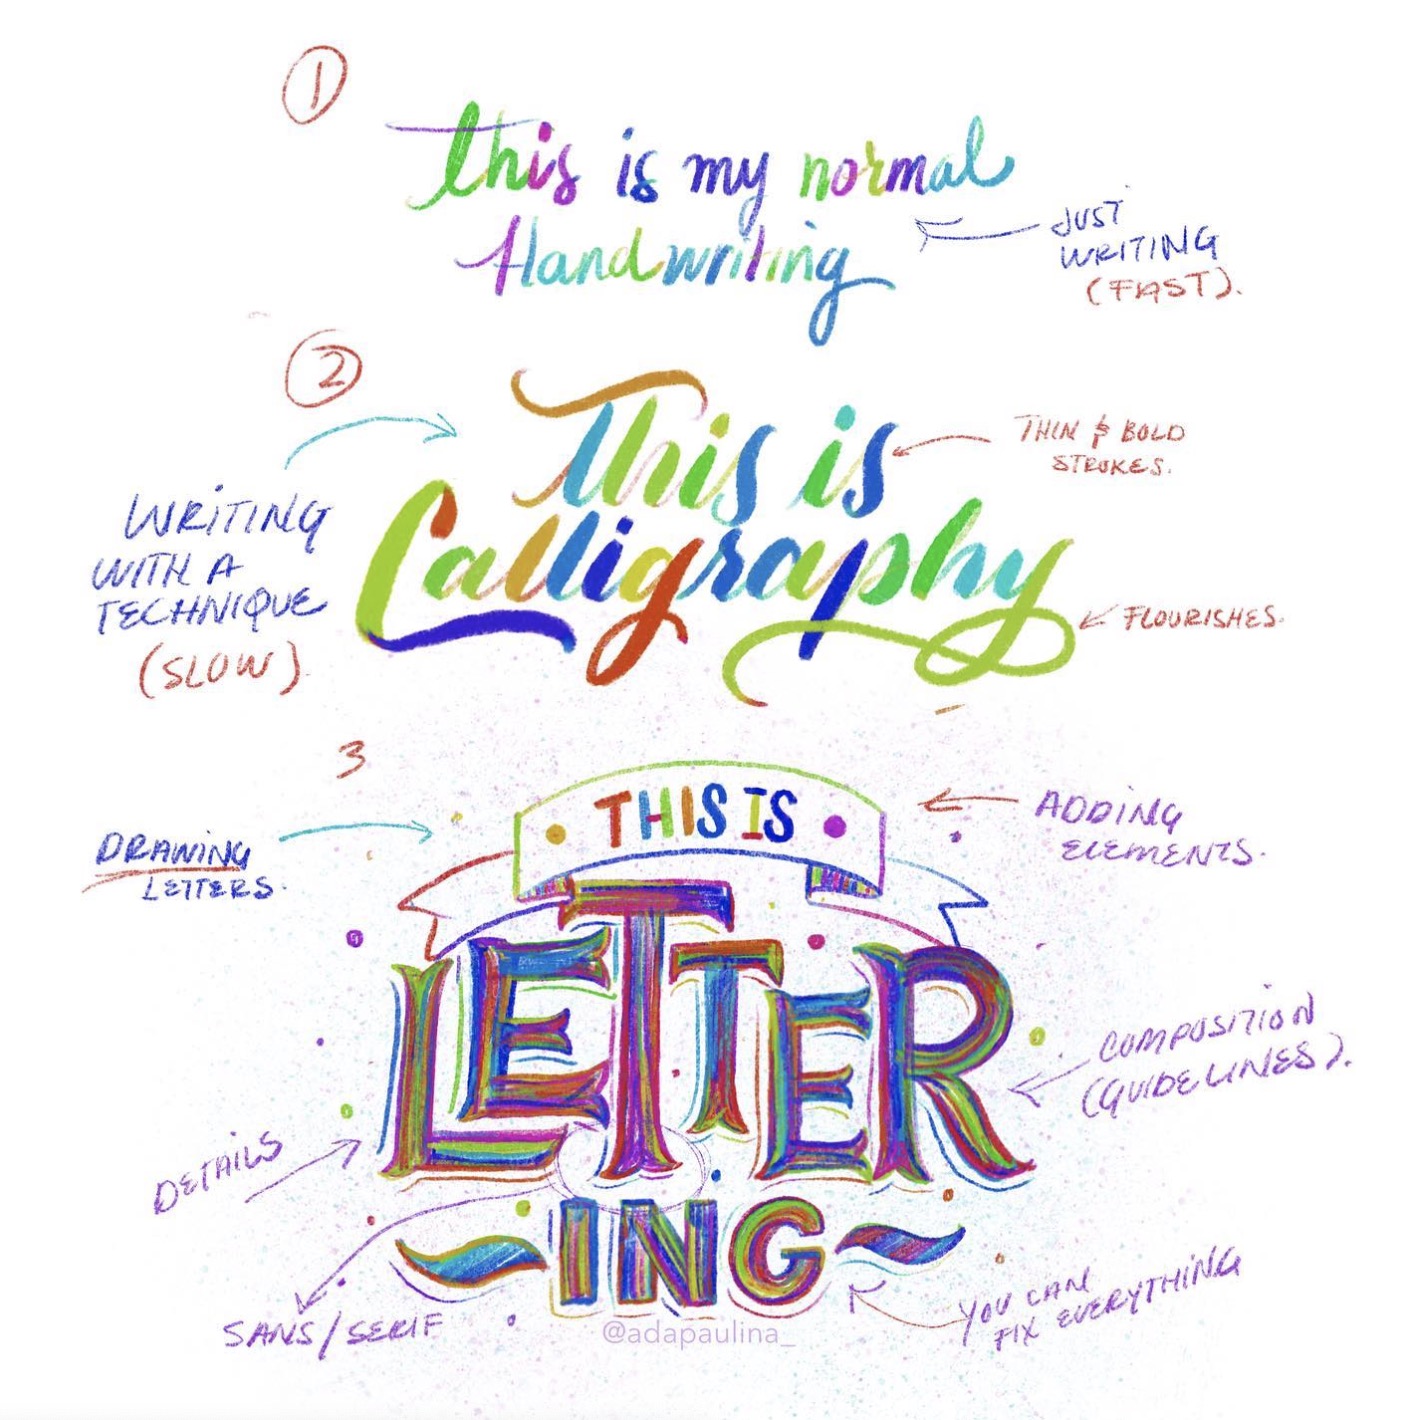 1
this is my normal
Handwriting
JUST
WRITING
(FAST).
2
This is
Calligraphy
THIN & BOLD
STROKES.
WRITING
WITH A
TECHNIQUE
(SLOW).
FLOURISHES.
3
THIS IS
LETTER
ING
DRAWING
LETTERS.
ADDING
ELEMENTS.
COMPOSITION
(GUIDELINES).
DETAILS
SANS/SERIF
YOU CAN
FIX EVERYTHING
@adapaulina_